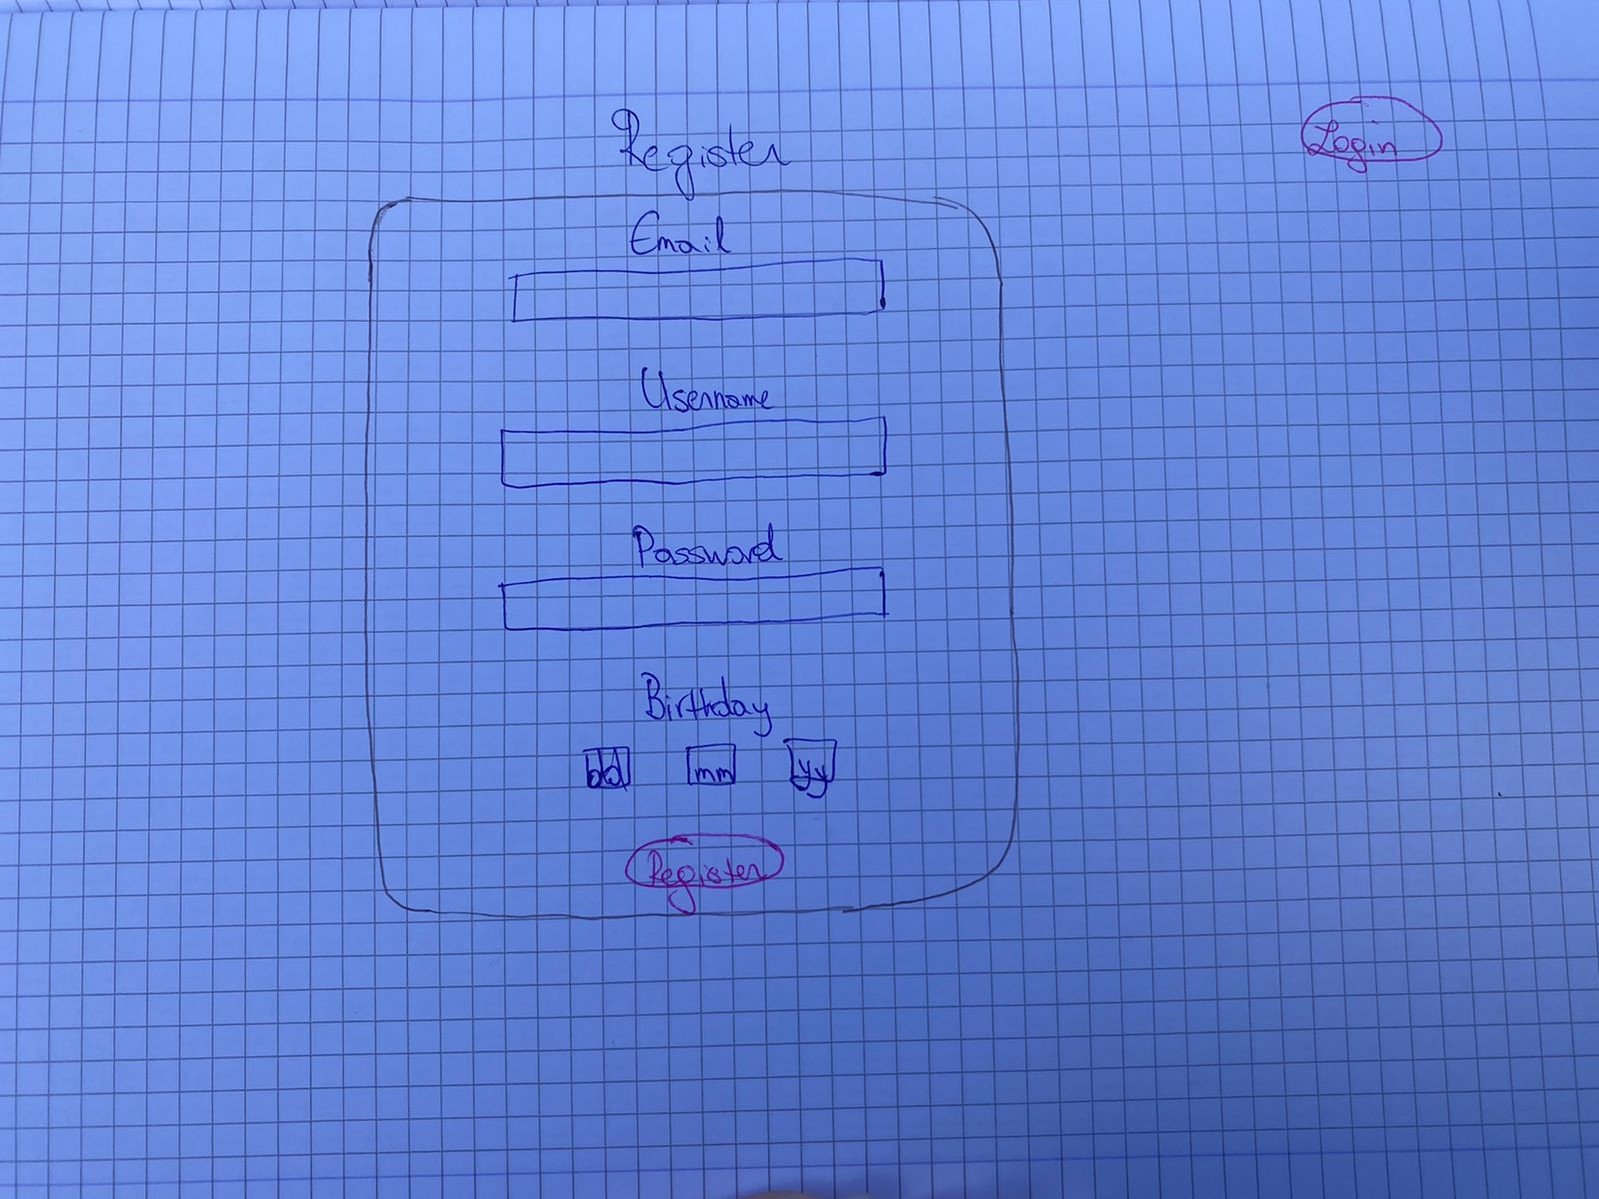 Register
Login
Email
Username
Password
Birthday
dd mm yy
Register